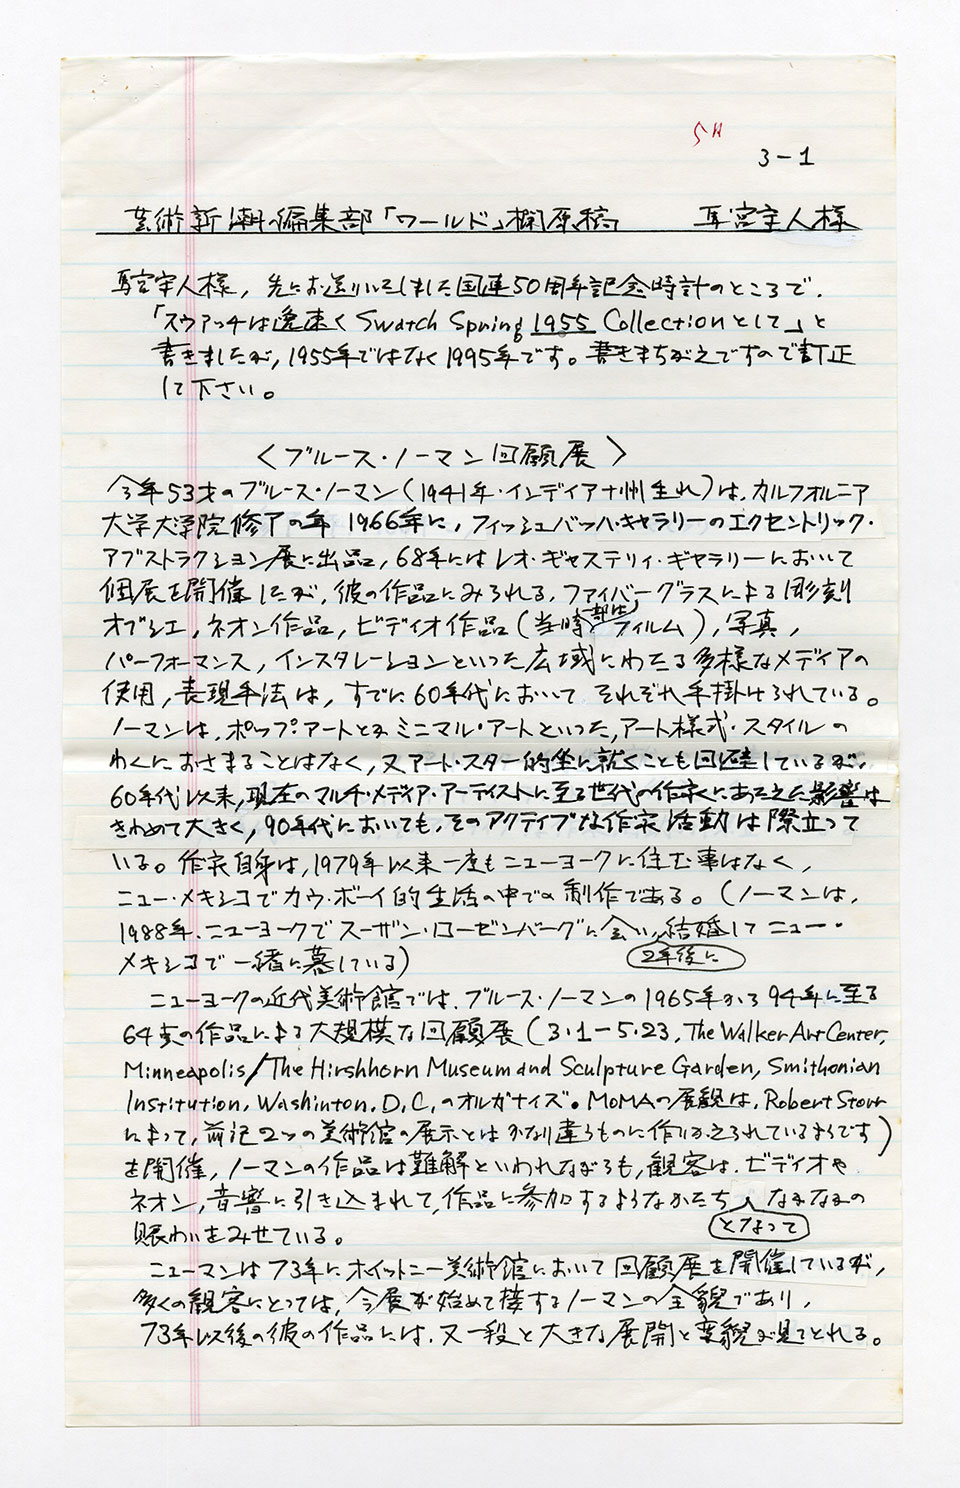 5H
3-1
芸術新潮編集部「ワールド」欄原稿 宮宇人様
宮宇人様，先にお送りいたしました国連50周年記念時計のところで，
「スウァッチは逸速く Swatch Spring 1955 Collection として」と
書きましたが，1955年ではなく1995年です。書きまちがえですので訂正
して下さい。
〈ブルース・ノーマン回顧展〉
今年53才のブルース・ノーマン（1941年・インディアナ州生れ）は，カルフォルニア
大学大学院修了の年 1966年に，フィッシュバッハ・ギャラリーのエクセントリック・
アブストラクション展に出品，68年にはレオ・ギャステリィ・ギャラリーにおいて
個展を開催したが，彼の作品にみられる，ファイバーグラスによる彫刻
オブジェ，ネオン作品，ビデイオ作品（当時一部はフィルム），写真，
パーフォーマンス，インスタレーションといった広域にわたる多様なメデイアの
使用，表現手法は，すでに60年代において それぞれ手掛けられている。
ノーマンは，ポップ・アートとかミニマル・アートといった，アート様式・スタイルの
わくにおさまることはなく，又アート・スター的坐に就くことも回避しているが，
60年代以来，現在のマルチ・メディア・アーティストに至る世代の作家にあたえた影響は
きわめて大きく，90年代においても，そのアクティブな作家活動は際立って
いる。作家自身は，1979年以来一度もニューヨークに住む事はなく，
ニュー・メキシコでカウ・ボーイ的生活の中での制作である。（ノーマンは，
1988年，ニューヨークでスーザン・ローゼンバーグに会い，2年後に結婚してニュー・
メキシコで一緒に暮している）
ニューヨークの近代美術館では，ブルース・ノーマンの1965年から94年に至る
64点の作品による大規模な回顧展（3・1－5・23，The Walker Art Center,
Minneapolis/The Hirshhorn Museum and Sculpture Garden, Smithonian
Institution, Washinton, D,C, のオルガナイズ。MoMAの展観は，Robert Storr
によって，前記2つの美術館の展示とはかなり違うものに作りかえられているようです）
を開催，ノーマンの作品は難解といわれながらも，観客は，ビデイオや
ネオン，音響に引き込まれて，作品に参加するようなかたちとなって なかなかの
賑わいをみせている。
ニューマンは73年にホイットニー美術館において回顧展を開催しているが，
多くの観客にとっては，今展が始めて接するノーマンの全貌であり，
73年以後の彼の作品には，又一段と大きな展開と変貌が見てとれる。